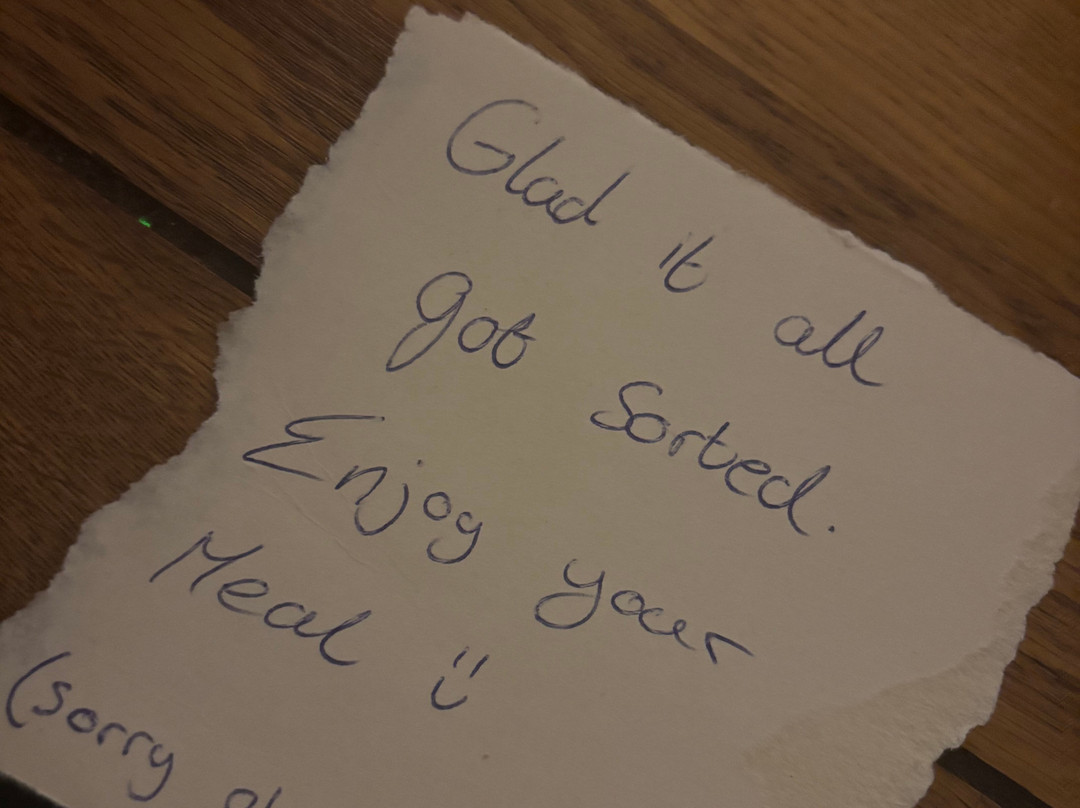 Glad it all
got sorted.
Enjoy your
Meal :)
(sorry